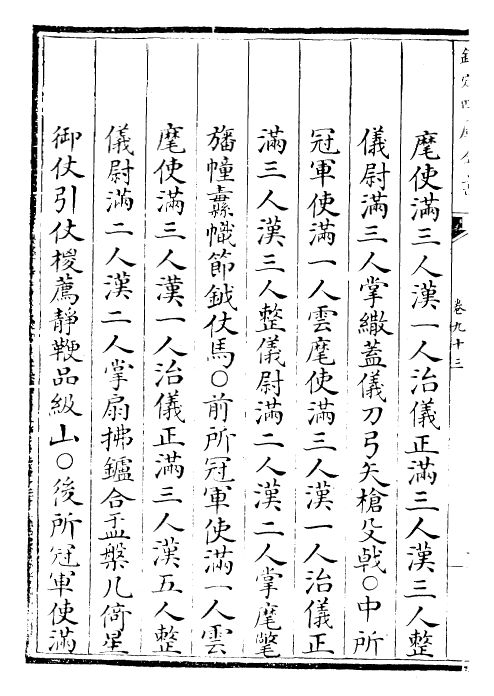 欽定四庫全書
卷九十三
麾使滿三人漢一人治儀正滿三人漢三人整
儀尉滿三人掌繖蓋儀刀弓矢槍殳戟○中所
冠軍使滿一人雲麾使滿三人漢一人治儀正
滿三人漢三人整儀尉滿二人漢二人掌麾氅
旛幢纛幟節鉞仗馬○前所冠軍使滿一人雲
麾使滿三人漢一人治儀正滿三人漢五人整
儀尉滿二人漢二人掌扇拂鑪合盂盤几倚星
御仗引仗椶薦靜鞭品級山○後所冠軍使滿